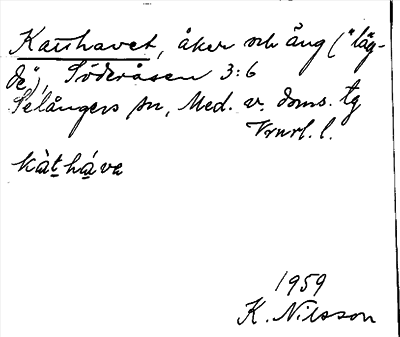 Katthavet, åker och äng ("läg-
de"), Söderåsen 3:6
Selångers sn, Med. v. doms. tg
Vrurl. l.
kàt háve
1959
K. Nilsson